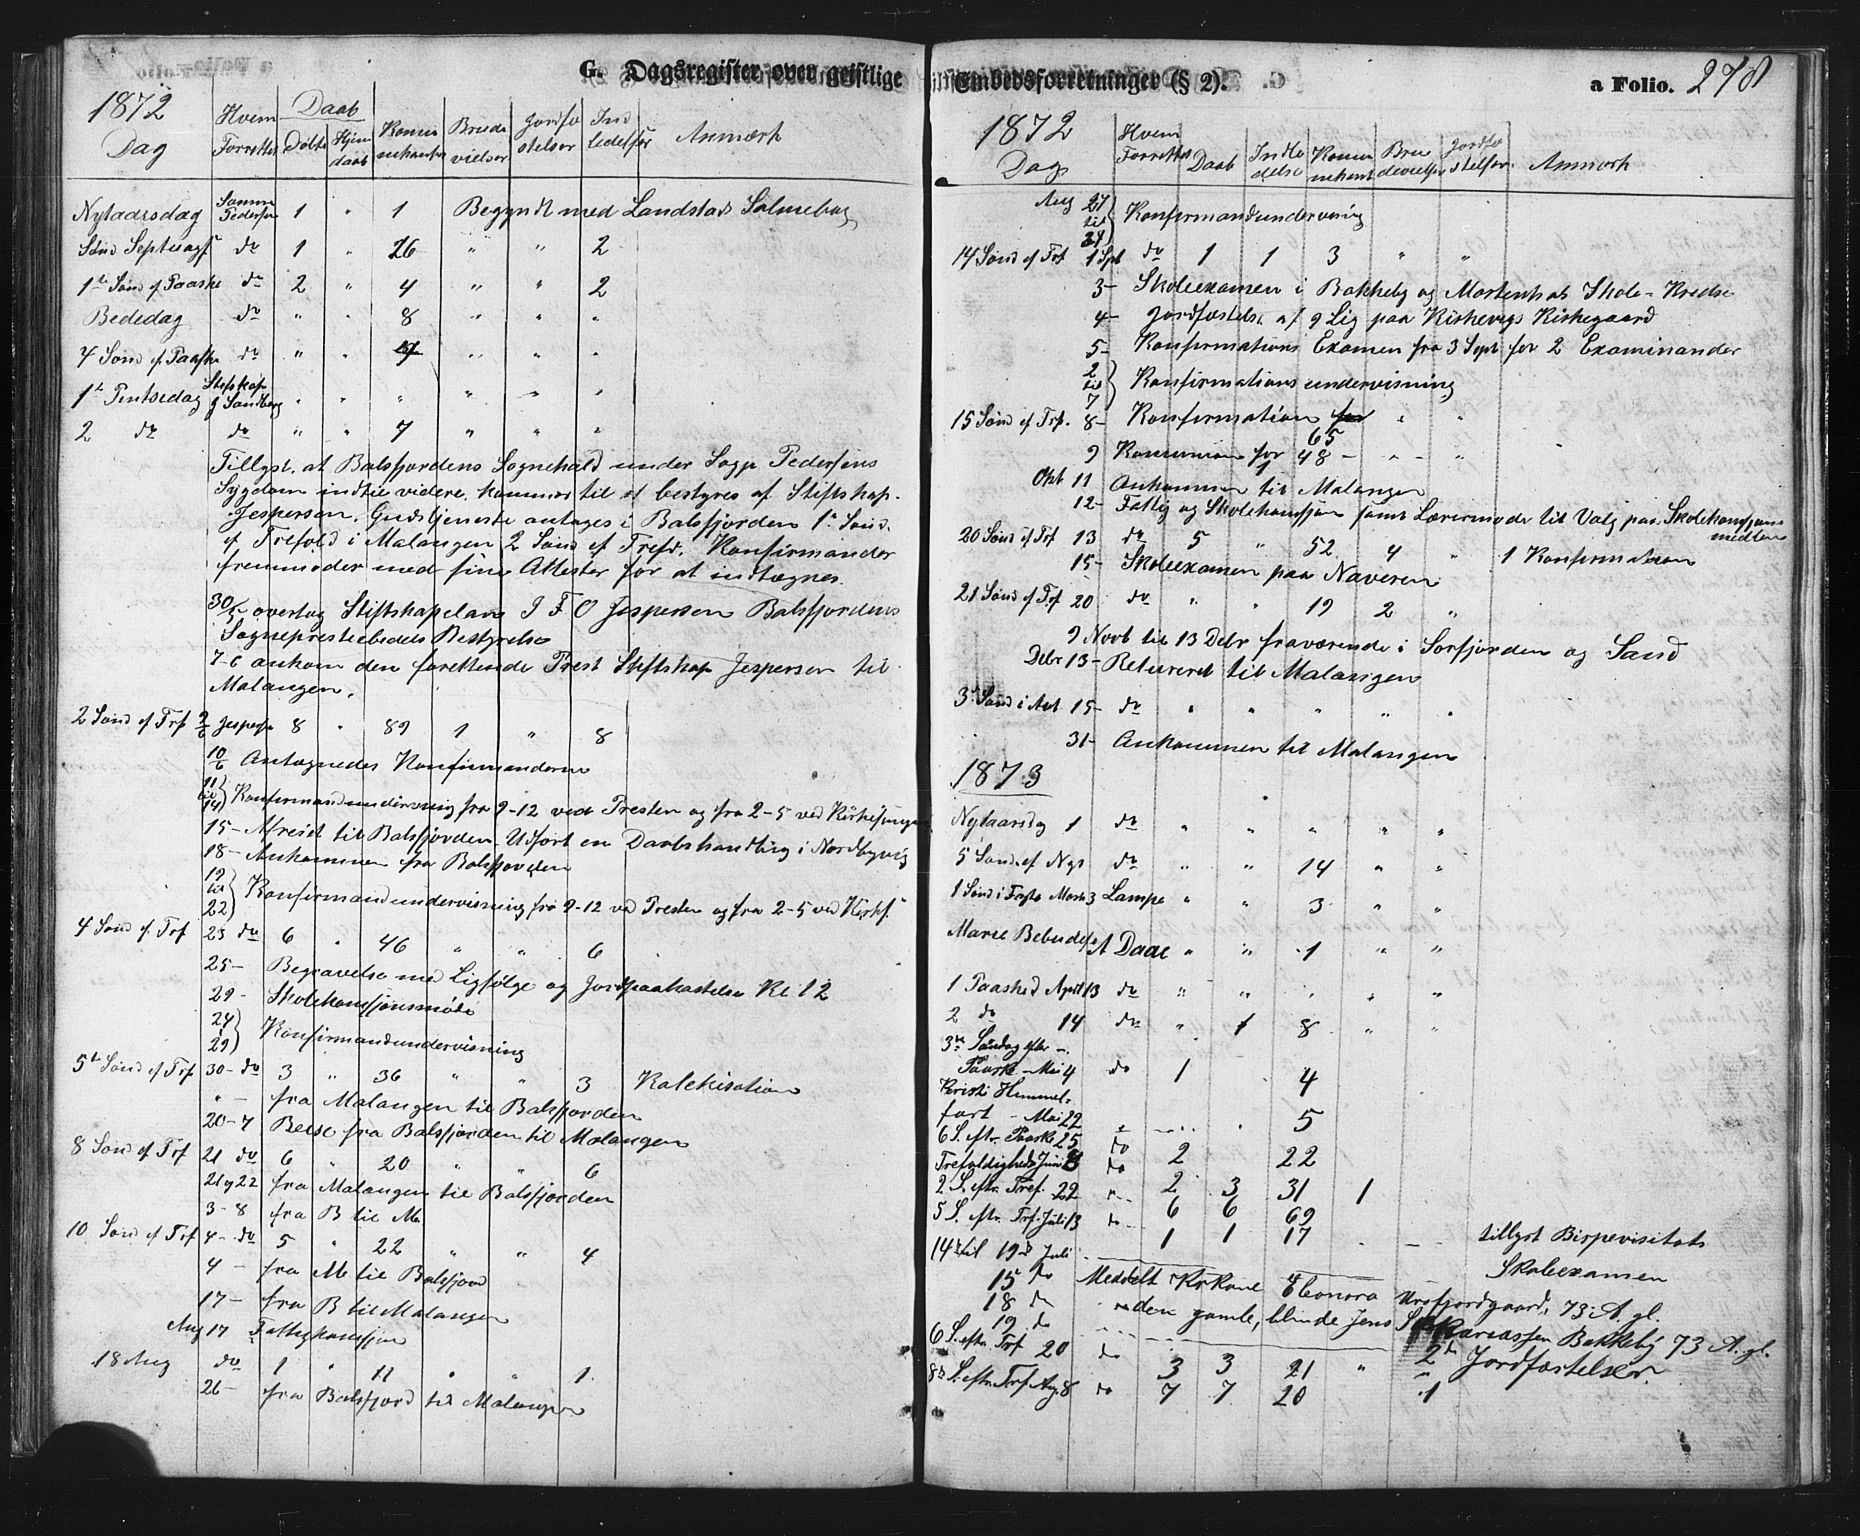 G. Dagsregister over geistlige
1872
Dag
Hvem Forretter
Daab
Døbte
Hjem daab
Kommunikanter
Brudevielser
Jordfæstelser
Indledelser
Anmærk
Nytaarsdag Sammes Pedersen 1 " 1 Begyndt med Landstads Salmebog
Sønd Septuags do 1 " 26 " " 2
1ste Sønd ef Paaske do 2 " 4 " " 2
Bededag do " " 8 " " "
4 Sønd ef Paaske do " " " " "
1ste Pintsedag Stifskap J Sandberg " " " " " "
2 do do " " 7 " " "
Tillyst. at Balsfjordens Sognekald under Sogp Pedersens
Sygdom indtil videre kommer til at bestyres af Stiftskap.
Jespersen. Gudstjeneste antages i Balsfjorden 1ste Sønd.
ef Trefold i Malangen 2 Sønd ef Trefd. Konfirmander
fremmøder med sine Attester for at indtægnes.
30/5 overtog Stiftskapelan J F O Jespersen Balsfjordens
Sogneprestembedets Bestyrelse
7-6 ankom den forettende Prest Stiftskap Jespersen til
Malangen.
2 Sønd ef Trf 9/6 Jespersen 8 " 89 1 " 8
10/6 Antægnedes Konfirmanderne
11 til 14 } Konfirmandundervisnig fra 9-12 ved Presten og fra 2-5 ved Kirkesangeren
15- Afreist til Balsfjorden. Udført en Daabshandling i Nordbyvig
18- Ankommen fra Balsfjorden
19 til 22 } Konfirmandundervisning fra 9-12 ved Presten og fra 2-5 ved Kirkes.
4 Sønd ef Trf 23 do 6 " 46 " " 6
25- Begravelse med Ligfølge og Jordpaakastelse Kl 12
29- Skolekomsjonsmøte
24 29 } Konfirmandundervisning
5te Sønd ef Trf 30- do 3 " 36 " " 3 Katekisation
" - fra Malangen til Balsfjorden
20-7 Reise fra Balsfjorden til Malangen
8 Sønd ef Trf 21 do 6 " 20 " " 6
21 og 22 fra Malangen til Balsfjorden
3-8 fra B til M.
10 Sønd ef Trf 4- do 5 " 22 " " 4
4 - fra M til Balsfjord
17- fra B til Malangen
Aug 17 Fattigkomsjon
18 Aug do 1 " 11 " " 1
26- fra Balsfjord til Malangen
Embedsforretninger (§ 2).
a Folio. 278
1872
Dag
Hvem Forretter
Daab
Indledelse
Kommunikant
Brudevielser
Jordfæstelser
Anmærk
Aug 21 til 24 } Konfirmandundervisnig
14 Sønd ef Trf 1 Spt do 1 1 3 " "
3- Skoleexamen i Bakkeby og Mortenhals Skole-Kredse
4- Jordfæstelse af 9 Lig paa Kirkevigs Kirkegaard
5- Konfirmations Examen fra 3 Sept for 2 Examinander
2 til 7 } Konfirmationsundervisning
15 Sønd ef Trf. 8- Konfirmation for 65 " "
9 Kommunion for 48 - " - "
Okt 11 Ankommen til Malangen
12- Fattig og Skolekomsjon samt Lærermøde til Valg paa Skolekomsjons
medlem
20 Sønd ef Trf 13 do 5 " 52 4 " 1 Konfirmation
15- Skoleexamen paa Naveren
21 Sønd ef Trf 20 do " " 19 2 "
9 Novb til 13 Debr fraværende i Sørfjorden og Sand
Debr 13- Retureret til Malangen
3 Sønd i Avt 15- do " " " " "
31- Ankommen til Malangen
1873
Nytaarsdg 1 do " " " " "
5 Sønd. ef Nyt do " " 14 " "
1 Sønd i Faste Marts 3 Lampe " " 3 " "
Marie Bebudelse A Daae " " 1 " "
1 Paasked April 13 do " " " " "
2 do 14 do " 1 8 " "
3de Søndag efter
Paaske - Mai 4 do 1 4
Kristi Himmel-
fart - Mai 22 " 5
6 S. eftr. Paaske 25 do 2 22
Trefoldigheds Juni 8 do 2 3 31 1
2 S. eftr. Tref. 22 " 6 6 69
5 S. eftr. Trf. Juli 13 do 1 1 17 tillyst Bispevisitats
14de til 19de Juli Skoleexamen
15 do Meddelt Krkone Eleonora Mrsfjordgaard, 73 A. gl.
18 do " den gamle, blinde Jens Bakkeby 73 A. gl.
19 do
6 S. eftr. Trf 20 do 3 3 21 " 2 Jordfæstelser.
8de S. eftr. Trf Aug 8 do 7 7 20 1